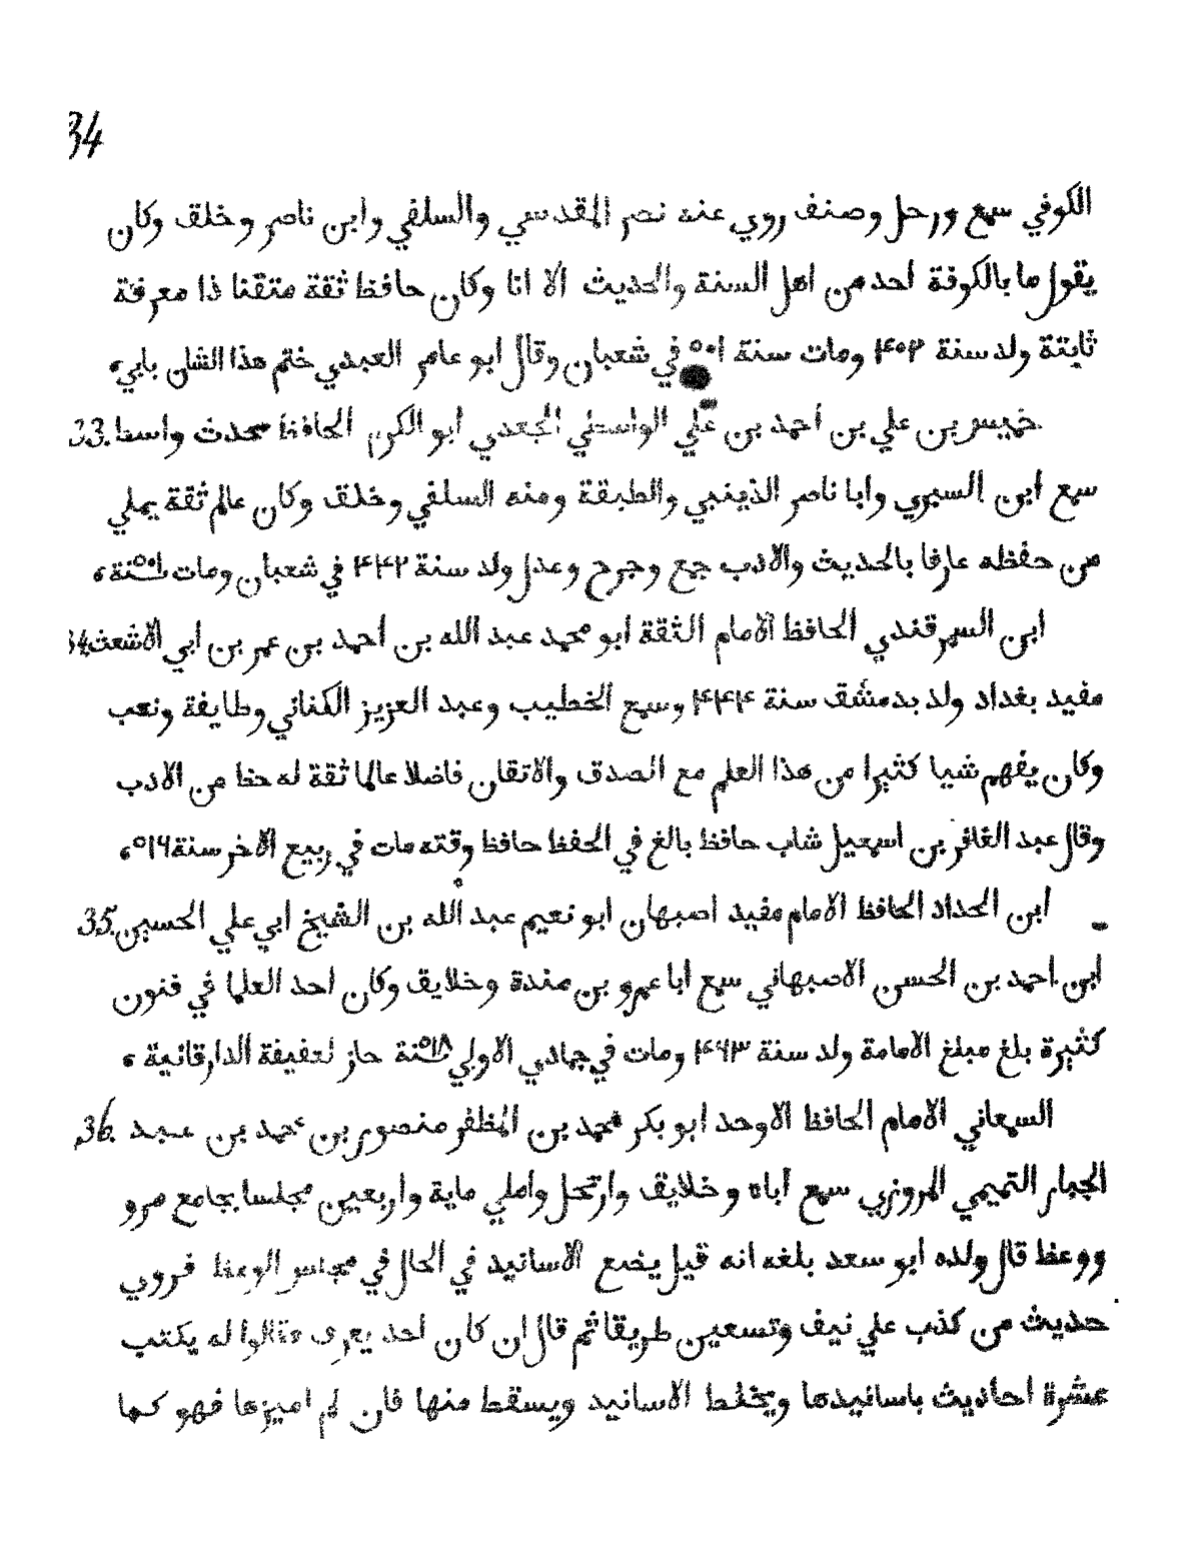 34
الكوفي سمع ورحل وصنف روي عنه نصر المقدسي والسلفي وابن ناصر وخلق وكان
يقول ما بالكوفة احد من اهل السنة والحديث الا انا وكان حافظ ثقة متقنا ذا معرفة
ثابتة ولد سنة ۴۰۲ ومات سنة ۵۰۱ في شعبان وقال ابو عامر العبدي ختم هذا الشان بابي
خميس بن علي بن أحمد بن علي الواسطي الجعدي ابو الكرم الحافظ محدث واسط 33.
سمع ابن السبري وابا ناصر الذينبي والطبقة ومنه السلفي وخلق وكان عالم ثقة يملي
من حفظه عارفا بالحديث والادب جمع وجرح وعدل ولد سنة ۴۴۲ في شعبان ومات سنة
ابن السمرقندي الحافظ الامام الثقة ابو محمد عبد الله بن أحمد بن عمر بن أبي الاشعث 34.
مفيد بغداد ولد بدمشق سنة ۴۴۴ وسمع الخطيب وعبد العزيز الكناني وطايفة ونعب
وكان يفهم شيا كثيرا من هذا العلم مع الصدق والاتقان فاضلا عالما ثقة له حظ من الادب
وقال عبد الغافر بن اسمعيل شاب حافظ بالغ في الحفظ حافظ وقته مات في ربيع الاخر سنة ۵۱۶
ابن الحداد الحافظ الامام مفيد اصبهان ابو نعيم عبد الله بن الشيخ ابي علي الحسين 35.
ابن احمد بن الحسن الاصبهاني سمع ابا عمرو بن مندة وخلايق وكان احد العلما في فنون
كثيرة بلغ مبلغ الامامة ولد سنة ۴۶۳ ومات في جمادي الاولي سنة ۵۱۸ حاز لتفيفة الدارقانية
السمعاني الامام الحافظ الاوحد ابو بكر محمد بن المظفر منصور بن محمد بن عبد 36.
الجبار التميمي المروزي سمع أباه وخلايق وارتحل وأملي ماية واربعين مجلسا بجامع مرو
ووعظ قال ولده ابو سعد بلغه انه قيل يضع الاسانيد في الحال في مجلس الوعظ فروي
حديث من كذب علي نيف وتسعين طريقا ثم قال ان كان احد يعرف فقالوا له يكتب
عشرة احاديث باسانيدها ويخلط الاسانيد ويسقط منها فان لم اميزها فهو كما